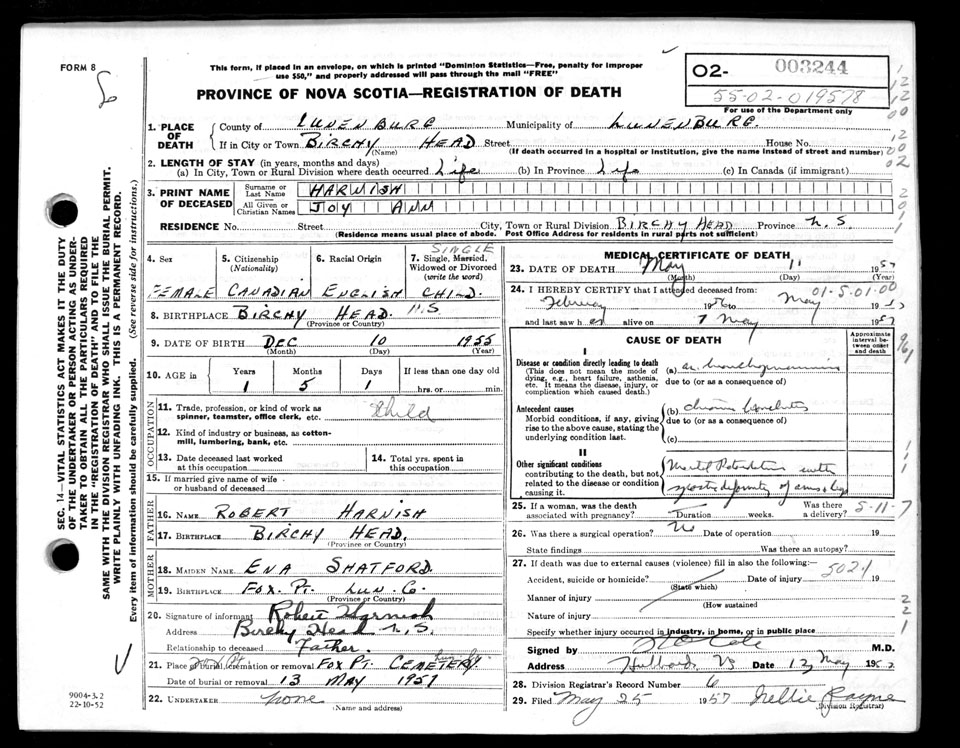 FORM 8
This form, if placed in an envelope, on which is printed "Dominion Statistics—Free, penalty for improper
use $50," and properly addressed will pass through the mail "FREE"
PROVINCE OF NOVA SCOTIA—REGISTRATION OF DEATH
02- 003244
55-02-019578
For use of the Department only
1. PLACE OF DEATH
County of LUNENBURG Municipality of LUNENBURG.
If in City or Town BIRCHY HEAD Street House No.
(Name) (If death occurred in a hospital or institution, give the name instead of street and number)
2. LENGTH OF STAY (in years, months and days)
(a) In City, Town or Rural Division where death occurred Life (b) In Province Life (c) In Canada (if immigrant)
3. PRINT NAME OF DECEASED
Surname or Last Name HARNISH
All Given or Christian Names JOY ANN
RESIDENCE No. Street City, Town or Rural Division BIRCHY HEAD Province N.S.
(Residence means usual place of abode. Post Office Address for residents in rural parts not sufficient)
4. Sex
FEMALE
5. Citizenship (Nationality)
CANADIAN
6. Racial Origin
ENGLISH
SINGLE
7. Single, Married, Widowed or Divorced (write the word)
CHILD.
8. BIRTHPLACE BIRCHY HEAD. N.S.
(Province or Country)
9. DATE OF BIRTH DEC 10 1955
(Month) (Day) (Year)
10. AGE in Years Months Days If less than one day old
1 5 1 hrs. or min.
OCCUPATION
11. Trade, profession, or kind of work as spinner, teamster, office clerk, etc. Child
12. Kind of industry or business, as cotton-mill, lumbering, bank, etc.
13. Date deceased last worked at this occupation
14. Total yrs. spent in this occupation
15. If married give name of wife or husband of deceased
FATHER
16. NAME ROBERT HARNISH
17. BIRTHPLACE BIRCHY HEAD.
(Province or Country)
MOTHER
18. MAIDEN NAME ENA SHATFORD.
19. BIRTHPLACE FOX. PT. LUN. CO.
(Province or Country)
20. Signature of informant Robert Harnish
Address Birchy Head N.S.
Relationship to deceased Father.
21. Place of burial, cremation or removal FOX PT. CEMETERY
Date of burial or removal 13 MAY 1957
22. UNDERTAKER none
(Name and address)
MEDICAL CERTIFICATE OF DEATH
23. DATE OF DEATH May 11 1957
(Month) (Day) (Year)
24. I HEREBY CERTIFY that I attended deceased from 01-5-01-00
February 1956 to May 19
and last saw her alive on 7 May 1957
CAUSE OF DEATH
Approximate interval between onset and death
I
Disease or condition directly leading to death
(This does not mean the mode of dying, e.g., heart failure, asthenia, etc. It means the disease, injury, or complication which caused death.)
(a) ac. bronchopneumonia
due to (or as a consequence of)
Antecedent causes
Morbid conditions, if any, giving rise to the above cause, stating the underlying condition last.
(b) chronic bronchitis
due to (or as a consequence of)
(c)
II
Other significant conditions
contributing to the death, but not related to the disease or condition causing it.
Mental Retardation with
deformity of arms & legs
25. If a woman, was the death associated with pregnancy? Duration weeks. Was there a delivery?
5-11-7
26. Was there a surgical operation? No Date of operation 19
State findings Was there an autopsy?
27. If death was due to external causes (violence) fill in also the following:—
5021
Accident, suicide or homicide? Date of injury 19
(State which)
Manner of injury
(How sustained
Nature of injury
Specify whether injury occurred in industry, in home, or in public place
Signed by M.D.
Address Hubbards, NS Date 12 May 195
28. Division Registrar's Record Number 6
29. Filed May 25 1957 Nellie Payne
(Division Registrar)
SEC. 14—VITAL STATISTICS ACT MAKES IT THE DUTY
OF THE UNDERTAKER OR PERSON ACTING AS UNDER-
TAKER TO OBTAIN ALL THE PARTICULARS REQUIRED
IN THE "REGISTRATION OF DEATH" AND TO FILE THE
SAME WITH THE DIVISION REGISTRAR WHO SHALL ISSUE THE BURIAL PERMIT.
WRITE PLAINLY WITH UNFADING INK. THIS IS A PERMANENT RECORD.
Every item of information should be carefully supplied. (See reverse side for instructions.)
9004-3.2
22-10-52